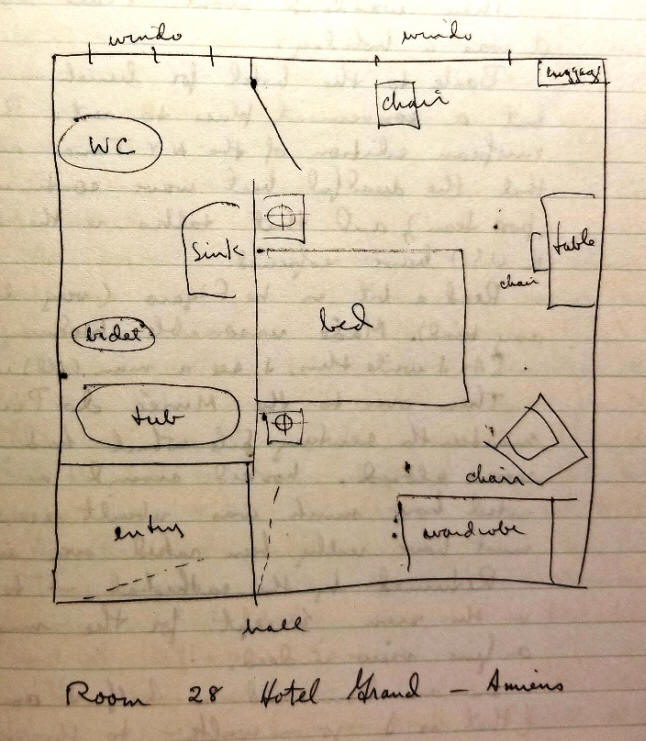 windo
windo
luggage
chair
WC
Sink
table
chair
bed
bidet
tub
chair
entry
wardrobe
hall
Room 28 Hotel Grand - Amiens